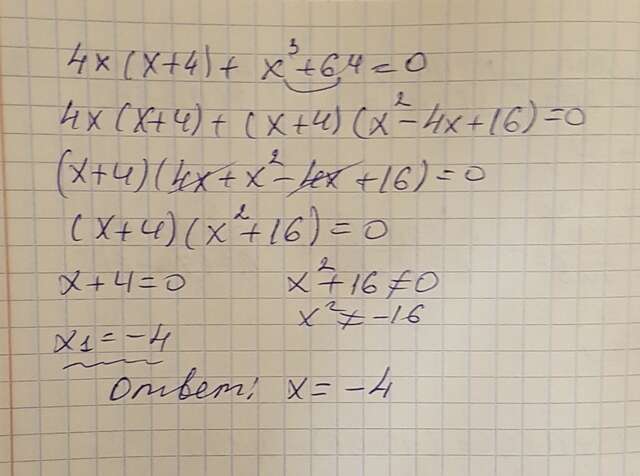 4x(x+4) + x³+64=0
4x(x+4) + (x+4)(x²-4x+16)=0
(x+4)(4x+x²-4x+16)=0
(x+4)(x²+16)=0
x+4=0 x²+16≠0
x²≠-16
x1=-4
Ответ: x=-4